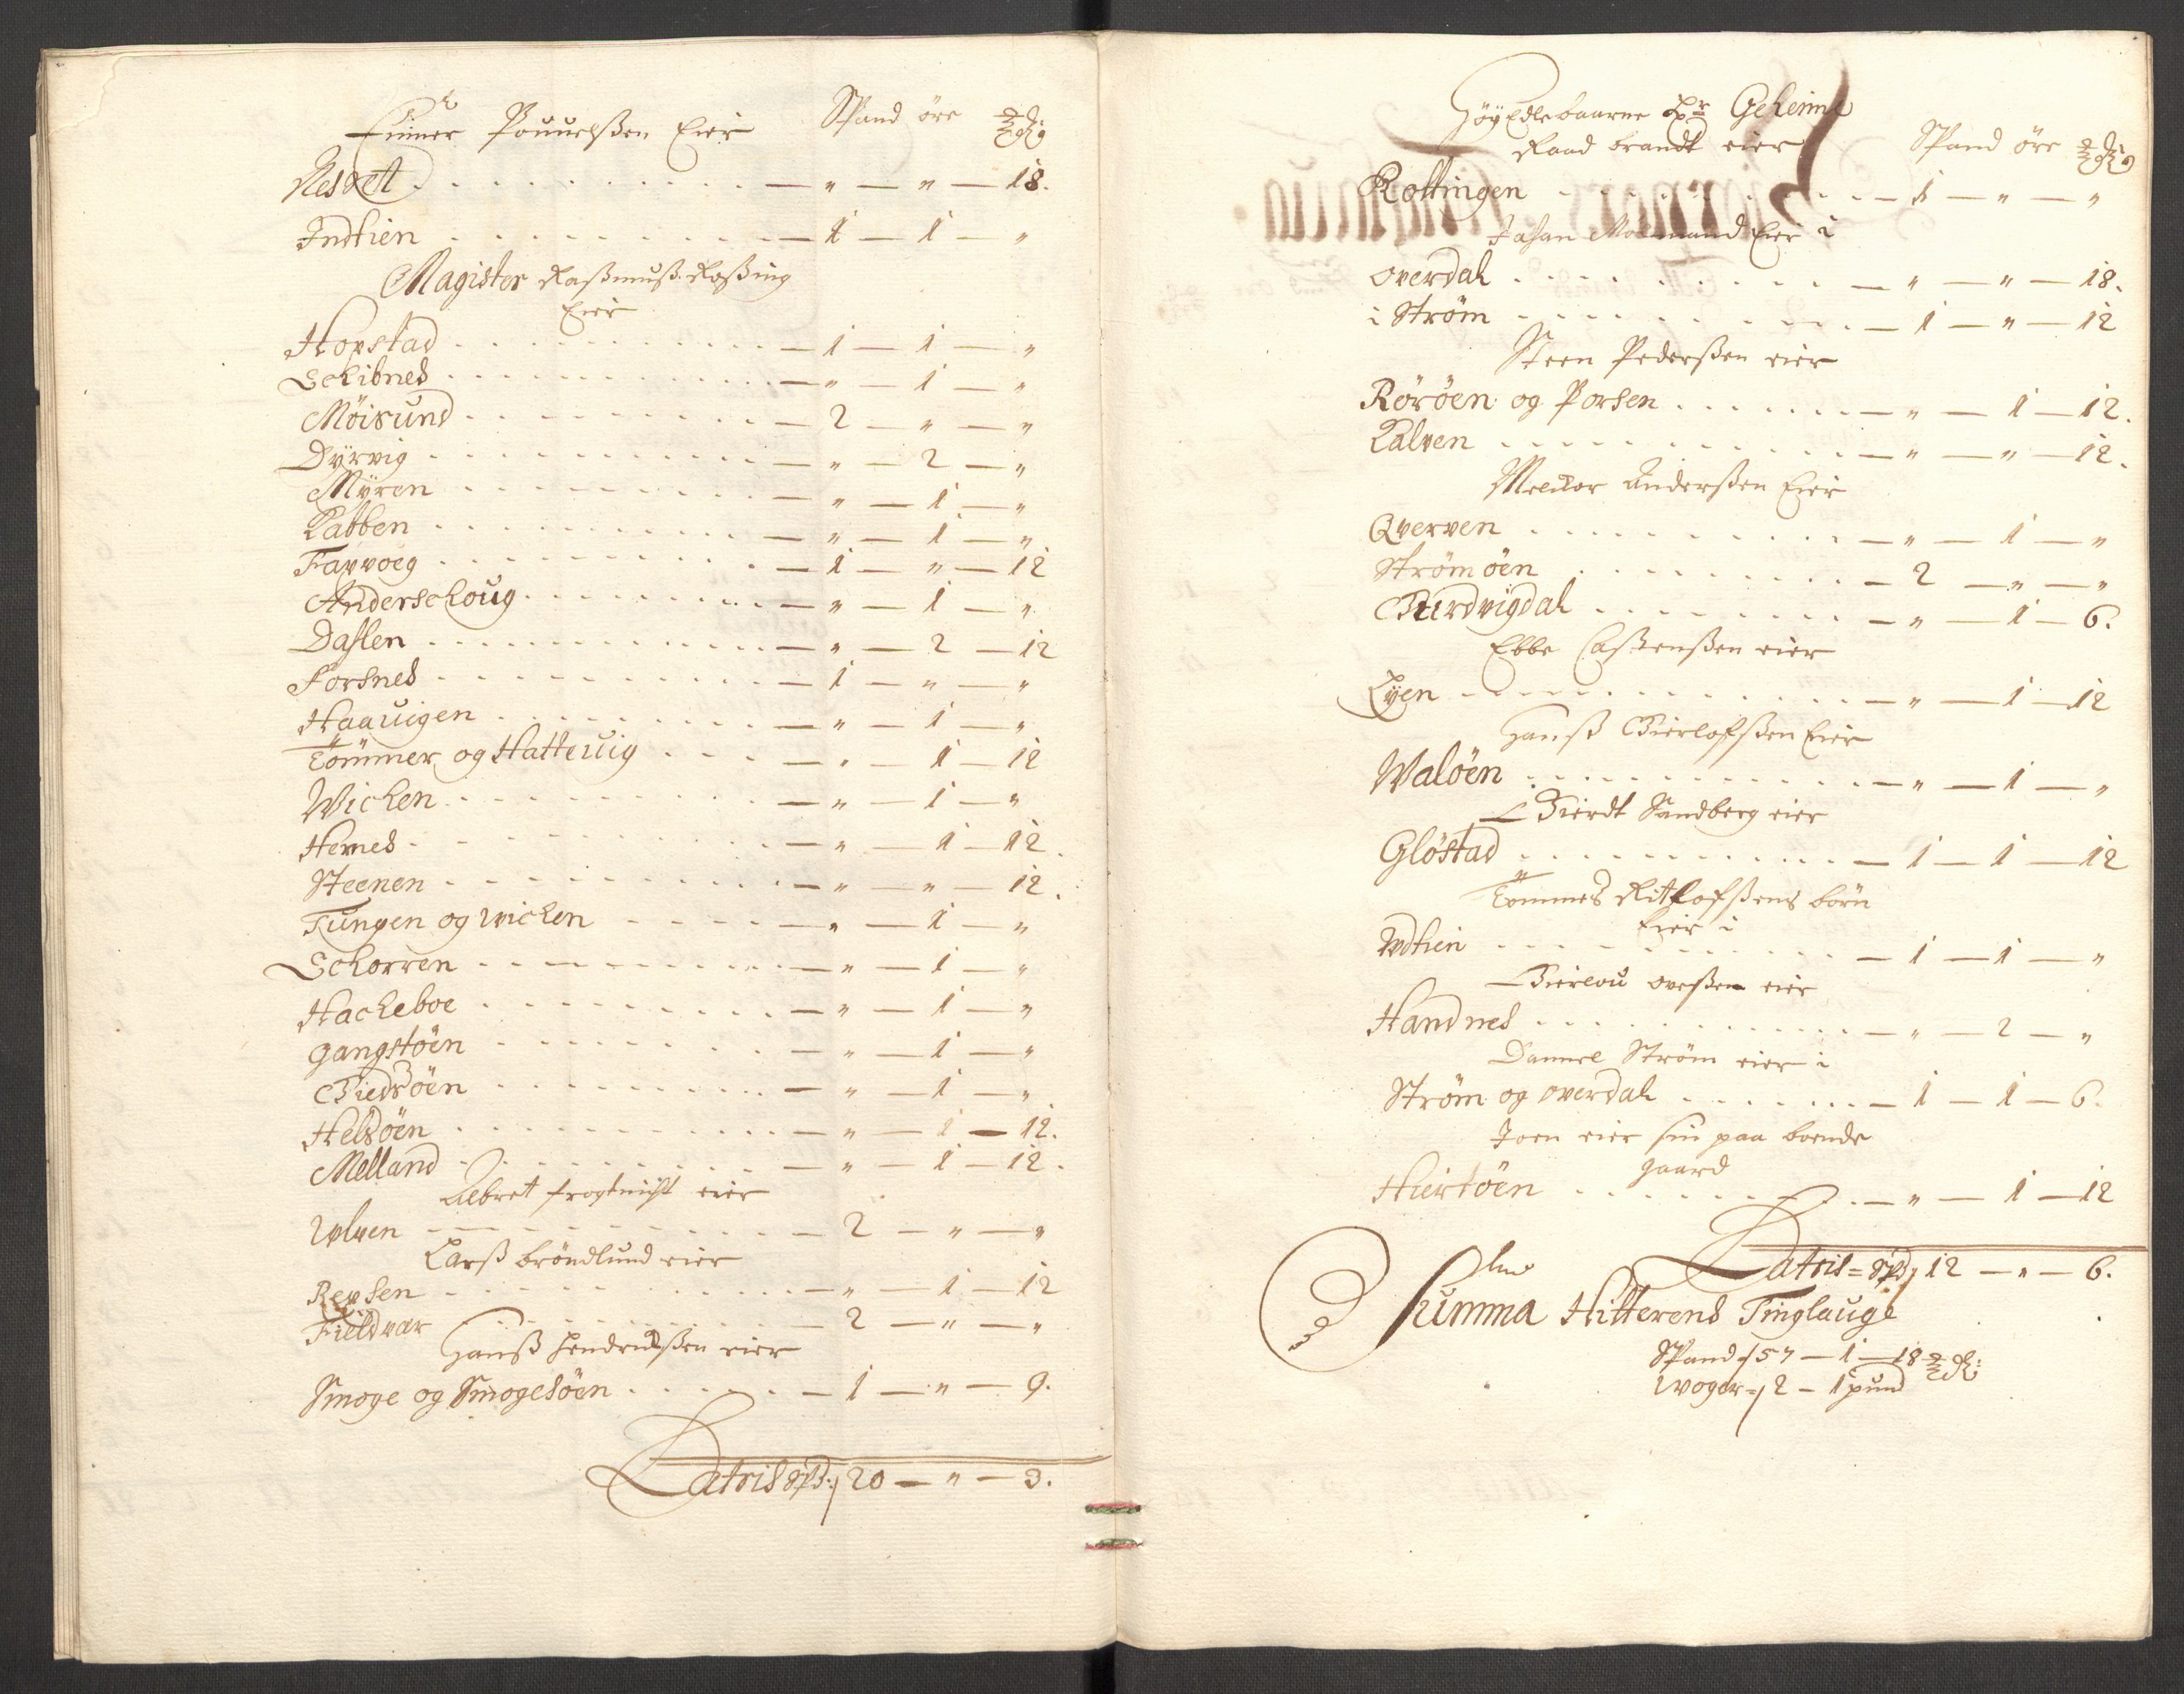 Einer Pouuelßen Eier Spand öre
Nesset - „ - „ - 18.
Indtien - 1 - 1 - „
Magister Raßmuß Roßing
Eier
Hopstad - 1 - 1 - „
Schibnes - „ - 1 - „
Möisund - 2 - „ - „
Dyrvig - „ - 2 - „
Myren - „ - 1 - „
Labben - „ - 1 - „
Favvoeg - 1 - „ - 12
Anderschoug - „ - 1 - „
Daslen - „ - 2 - 12
Forsnes - 1 - „ - „
Haavigen - „ - 1 - „
Tömmer og Hattevig - „ - 1 - 12
Wichen - „ - 1 - „
Hernes - „ - 1 - 12.
Steenen - „ - „ - 12.
Tungen og wichen - „ - 1 - „
Schorren - „ - 1 - „
Hacheboe - „ - 1 - „
gangstöen - „ - 1 - „
Giedsöen - „ - 1 - „
Helsöen - „ - 1 - 12.
Melland - „ - 1 - 12.
Albret frogtnicht eier
Ulven - 2 - „ - „
Larß bröndlund eier
Repsen - „ - 1 - 12
Fieldvær - 2 - „ - „
Hanß Hendrichßen eier
Smoge og Smogesöen - 1 - „ - 9.
Latris spd: 20 - „ - 3.
Höy Edlebaarne Hr Geheime
Raad brandt eier Spand öre
Kottingen - 1 - „ - „
Johan Mölmand Eier i
overdal - „ - „ - 18.
i Ström - 1 - „ - 12
Steen Pederßen eier
Röröen og Porsen - „ - 1 - 12.
Kalven - „ - „ - 12.
Melchior Anderßen Eier
Qverven - „ - 1 - „
Strömöen - 2 - „ - „
Burdvigdal - „ - 1 - 6.
Ebbe Castenßen eier
Lyen - „ - 1 - 12
Hanß Gierlofßen Eier
Waløen - „ - 1 - „
Gierdt Sandberg eier
Glöstad - 1 - 1 - 12
Tommes Ritlofßens börn
Eier i
Udtien - 1 - 1 - „
Gierlou oveßen eier
Handnes - „ - 2 - „
Daniel Ström eier i
Ström og overdal - 1 - 1 - 6.
Joen eier sin paa boende
gaard
Hiertöen - „ - 1 - 12
Latris = spd 12 - „ - 6.
Summa Hitterens Tinglauge
Spand 157 - 1 - 18
woger = 2 - 1 pund